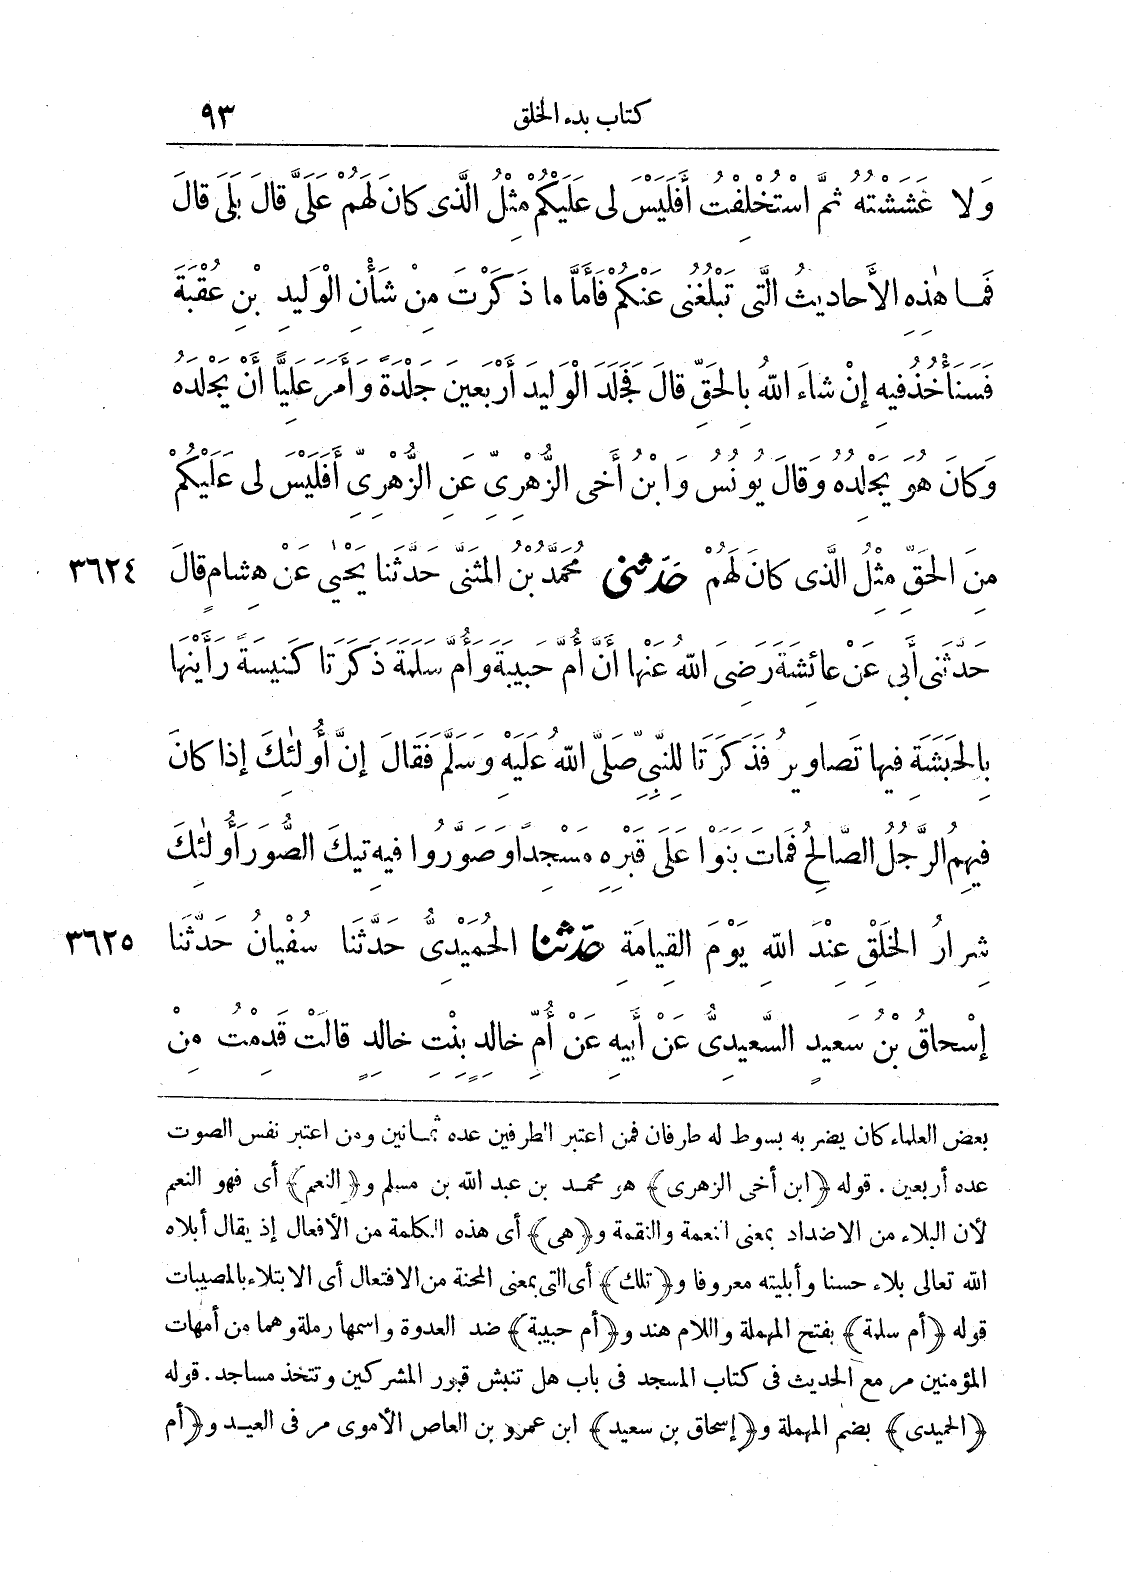 كتاب بدء الخلق ٩٣
وَلَا غَشَشْتُهُ ثُمَّ اسْتُخْلِفْتُ أَفَلَيْسَ لِى عَلَيْكُمْ مِثْلُ الَّذِى كَانَ لَهُمْ عَلَىَّ قَالَ بَلَى قَالَ
فَمَا هٰذِهِ الأَحَادِيثُ الَّتِى تَبْلُغُنِى عَنْكُمْ فَأَمَّا مَا ذَكَرْتَ مِنْ شَأْنِ الْوَلِيدِ بْنِ عُقْبَةَ
فَسَنَأْخُذُ فِيهِ إِنْ شَاءَ اللّهُ بِالحَقِّ قَالَ فَجَلَدَ الْوَلِيدَ أَرْبَعِينَ جَلْدَةً وَأَمَرَ عَلِيًّا أَنْ يَجْلِدَهُ
وَكَانَ هُوَ يَجْلِدُهُ وَقَالَ يُونُسُ وَابْنُ أَخِى الزُّهْرِىِّ عَنِ الزُّهْرِىِّ أَفَلَيْسَ لِى عَلَيْكُمْ
٣٦٢٤ مِنَ الحَقِّ مِثْلُ الَّذِى كَانَ لَهُمْ حَدَّثَنِى مُحَمَّدُ بْنُ المُثَنَّى حَدَّثَنَا يَحْيٰى عَنْ هِشَامٍ قَالَ
حَدَّثَنِى أَبِى عَنْ عَائِشَةَ رَضِىَ اللّهُ عَنْهَا أَنَّ أُمَّ حَبِيبَةَ وَأُمَّ سَلَمَةَ ذَكَرَتَا كَنِيسَةً رَأَيْنَهَا
بِالحَبَشَةِ فِيهَا تَصَاوِيرُ فَذَكَرَتَا لِلنَّبِىِّ صَلَّى اللّهُ عَلَيْهِ وَسَلَّمَ فَقَالَ إِنَّ أُولٰئِكَ إِذَا كَانَ
فِيهِمُ الرَّجُلُ الصَّالِحُ فَمَاتَ بَنَوْا عَلَى قَبْرِهِ مَسْجِدًا وَصَوَّرُوا فِيهِ تِيكَ الصُّوَرَ أُولٰئِكَ
٣٦٢٥ شِرَارُ الخَلْقِ عِنْدَ اللّهِ يَوْمَ القِيَامَةِ حَدَّثَنَا الحُمَيْدِىُّ حَدَّثَنَا سُفْيَانُ حَدَّثَنَا
إِسْحَاقُ بْنُ سَعِيدٍ السَّعِيدِىُّ عَنْ أَبِيهِ عَنْ أُمِّ خَالِدٍ بِنْتِ خَالِدٍ قَالَتْ قَدِمْتُ مِنْ
بعض العلماء كان يضربه بسوط له طرفان فمن اعتبر الطرفين عده ثمانين ومن اعتبر نفس الصوت
عده أربعين . قوله ﴿ابن أخى الزهرى﴾ هو محمد بن عبد الله بن مسلم و﴿النعم﴾ أى فهو النعم
لأن البلاء من الاضداد بمعنى النعمة والنقمة و﴿هى﴾ أى هذه الكلمة من الأفعال إذ يقال أبلاه
الله تعالى بلاء حسنا وأبليته معروفا و﴿تلك﴾ أى التى بمعنى المحنة من الافتعال أى الابتلاء بالمصيبات
قوله ﴿أم سلمة﴾ بفتح المهملة واللام هند و﴿أم حبيبة﴾ ضد العدوة واسمها رملة وهما من أمهات
المؤمنين مر مع الحديث فى كتاب المسجد فى باب هل تنبش قبور المشركين وتتخذ مساجد . قوله
﴿الحميدى﴾ بضم المهملة و﴿إسحاق بن سعيد﴾ ابن عمرو بن العاص الأموى مر فى العيد و﴿أم